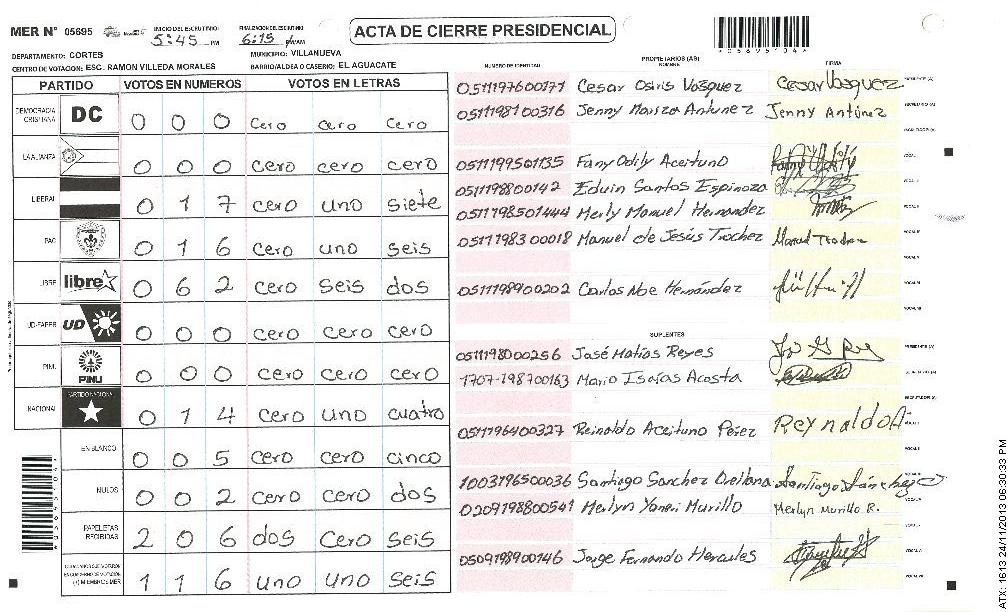 MER N° 05695
INICIO DEL ESCRUTINIO: 5:45 PM
FINALIZACION DEL ESCRUTINIO: 6:15 PM/AM
ACTA DE CIERRE PRESIDENCIAL
DEPARTAMENTO: CORTES
MUNICIPIO: VILLANUEVA
CENTRO DE VOTACION: ESC. RAMON VILLEDA MORALES
BARRIO/ALDEA O CASERIO: EL AGUACATE
PARTIDO VOTOS EN NUMEROS VOTOS EN LETRAS
DEMOCRACIA CRISTIANA DC 0 0 0 cero cero cero
LA ALIANZA 0 0 0 cero cero cero
LIBERAL 0 1 7 cero uno siete
PAC 0 1 6 cero uno seis
LIBRE libre 0 6 2 cero seis dos
UD-FAPER UD 0 0 0 cero cero cero
PINU PINU 0 0 0 cero cero cero
NACIONAL PARTIDO NACIONAL 0 1 4 cero uno cuatro
EN BLANCO 0 0 5 cero cero cinco
NULOS 0 0 2 cero cero dos
PAPELETAS RECIBIDAS 2 0 6 dos cero seis
1 1 6 uno uno seis
PROPIETARIOS (AS)
NUMERO DE IDENTIDAD NOMBRE FIRMA
0511197600171 Cesar Osiris Vasquez Cesar Vasquez
0511198100316 Jenny Mariza Antunez Jenny Antúnez
0511199501135 Fany Odily Aceituno
0511198800142 Edwin Santos Espinoza
0511198501444 Merly Manuel Hernandez
0511198300018 Manuel de Jesús Trochez
0511198900202 Carlos Noe Hernández
SUPLENTES
0511198000256 José Matías Reyes
1707-198700163 Mario Isaías Acosta
0511196400327 Reinaldo Aceituno Pérez Reynaldo A
1003196500036 Santiago Sanchez Orellana Santiago Sánchez O
0209198800541 Merlyn Yaneri Murillo Merlyn Murillo R.
0509198900146 Jorge Fernando Hercules
ATX: 1613 24/11/2013 06:30:33 PM